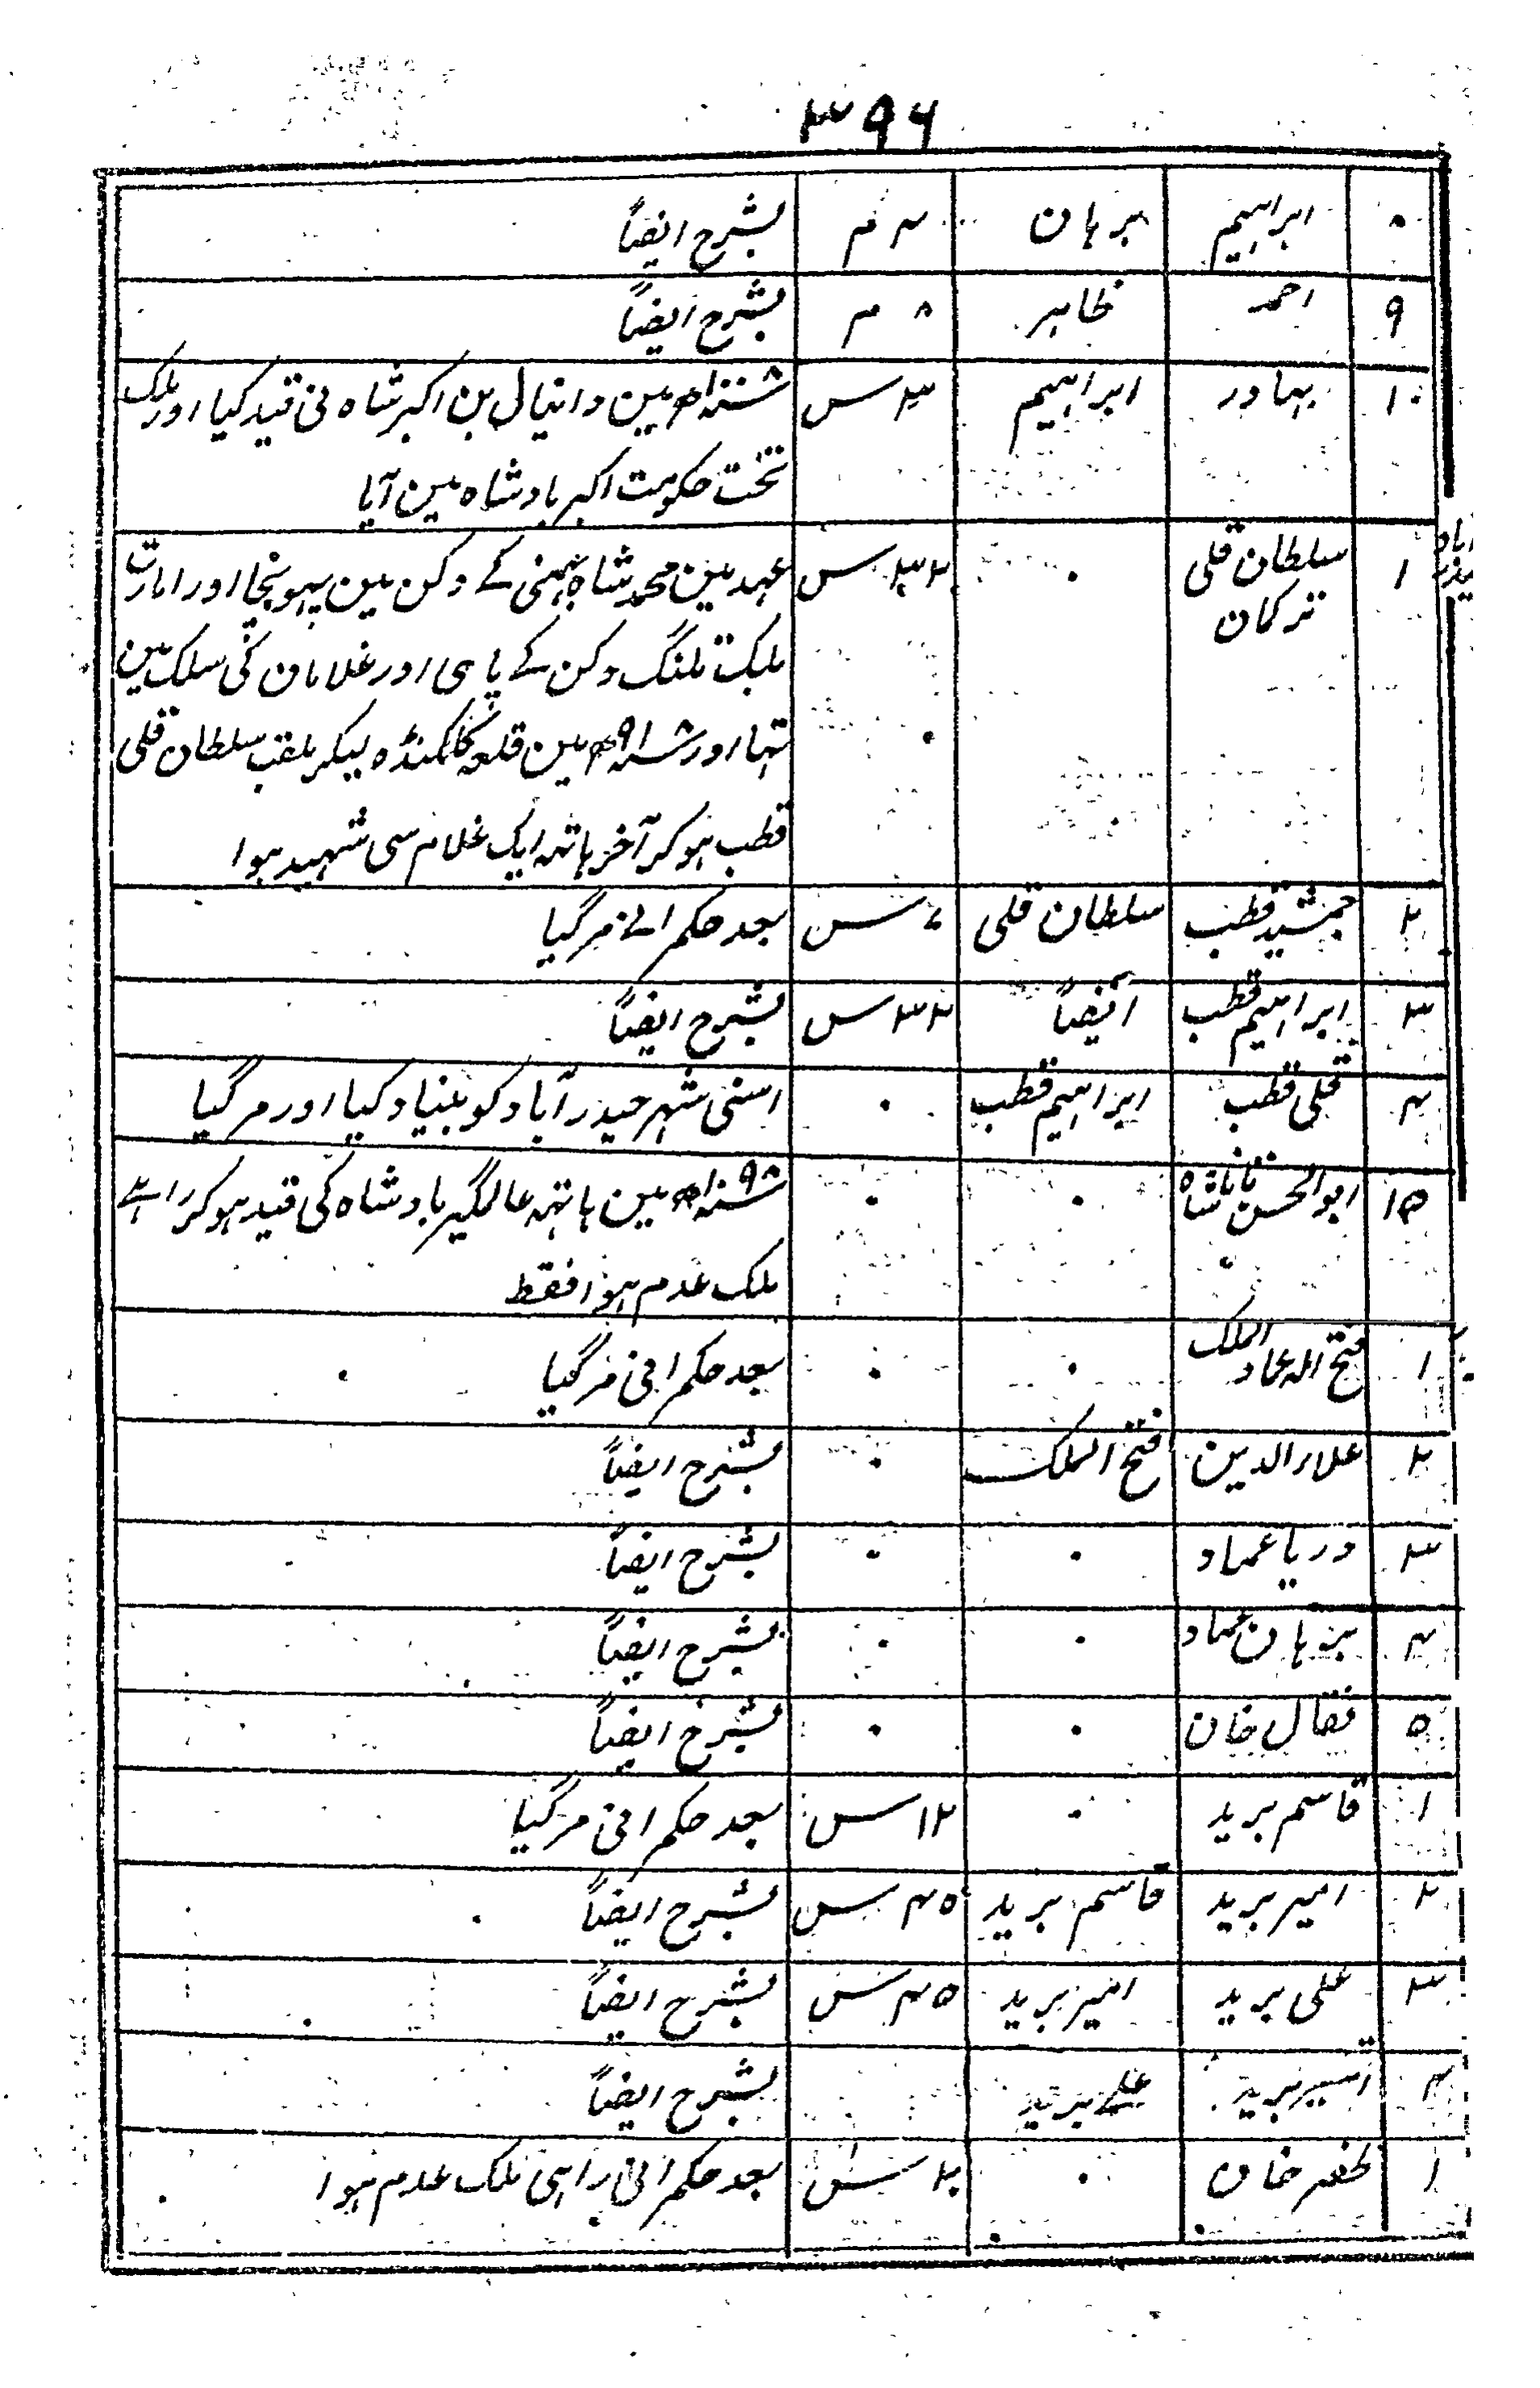 ۳۹۶
۸ ابراہیم برہان ۴ م بشرح ایضاً
۹ احمد طاہر ۸ م بشرح ایضاً
۱۰ بہادر ابراہیم ۳ س ۱۰۰۸ مین دانیال بن اکبر شاہ نی قید کیا اور ملک
تحت حکومت اکبر بادشاہ مین آیا
۱ سلطان قلی ۳۳ س عہد مین محمد شاہ بہمنی کے دکن مین پہونچا اور امارت
ترکمان
ملک تلنگ دکن کے پای اور غلامان کی سلک مین
تہا اور ۹۱۸ مین قلعہ گلکنڈہ لیکر ملقب سلطان قلی
قطب ہو کر آخر ہاتہہ ایک غلام سی شہید ہوا
۲ جمشید قطب سلطان قلی ۷ س بعد حکمرانے مر گیا
۳ ابراہیم قطب ایضاً ۳۲ س بشرح ایضاً
۴ قلی قطب ابراہیم قطب ۰ اسنی شہر حیدر آباد کو بنیاد کیا اور مر گیا
۱۵ ابوالحسن تاناشاہ ۰ ۰ ۱۰۹۸ مین ہاتہہ عالمگیر بادشاہ کی قید ہو کر راہے
ملک عدم ہوا فقط
۱ فتح اللہ عماد الملک ۰ ۰ بعد حکمرانی مر گیا
۲ علاء الدین فتح الملک ۰ بشرح ایضاً
۳ دریا عماد ۰ ۰ بشرح ایضاً
۴ برہان عماد ۰ ۰ بشرح ایضاً
۵ تفال خان ۰ ۰ بشرح ایضاً
۱ قاسم برید ۰ ۱۲ س بعد حکمرانی مر گیا
۲ امیر برید قاسم برید ۴۵ س بشرح ایضاً
۳ علی برید امیر برید ۴۵ س بشرح ایضاً
۴ امیر برید علی برید بشرح ایضاً
۱ ظفر خان ۰ ۴ س بعد حکمرانی راہی ملک عدم ہوا